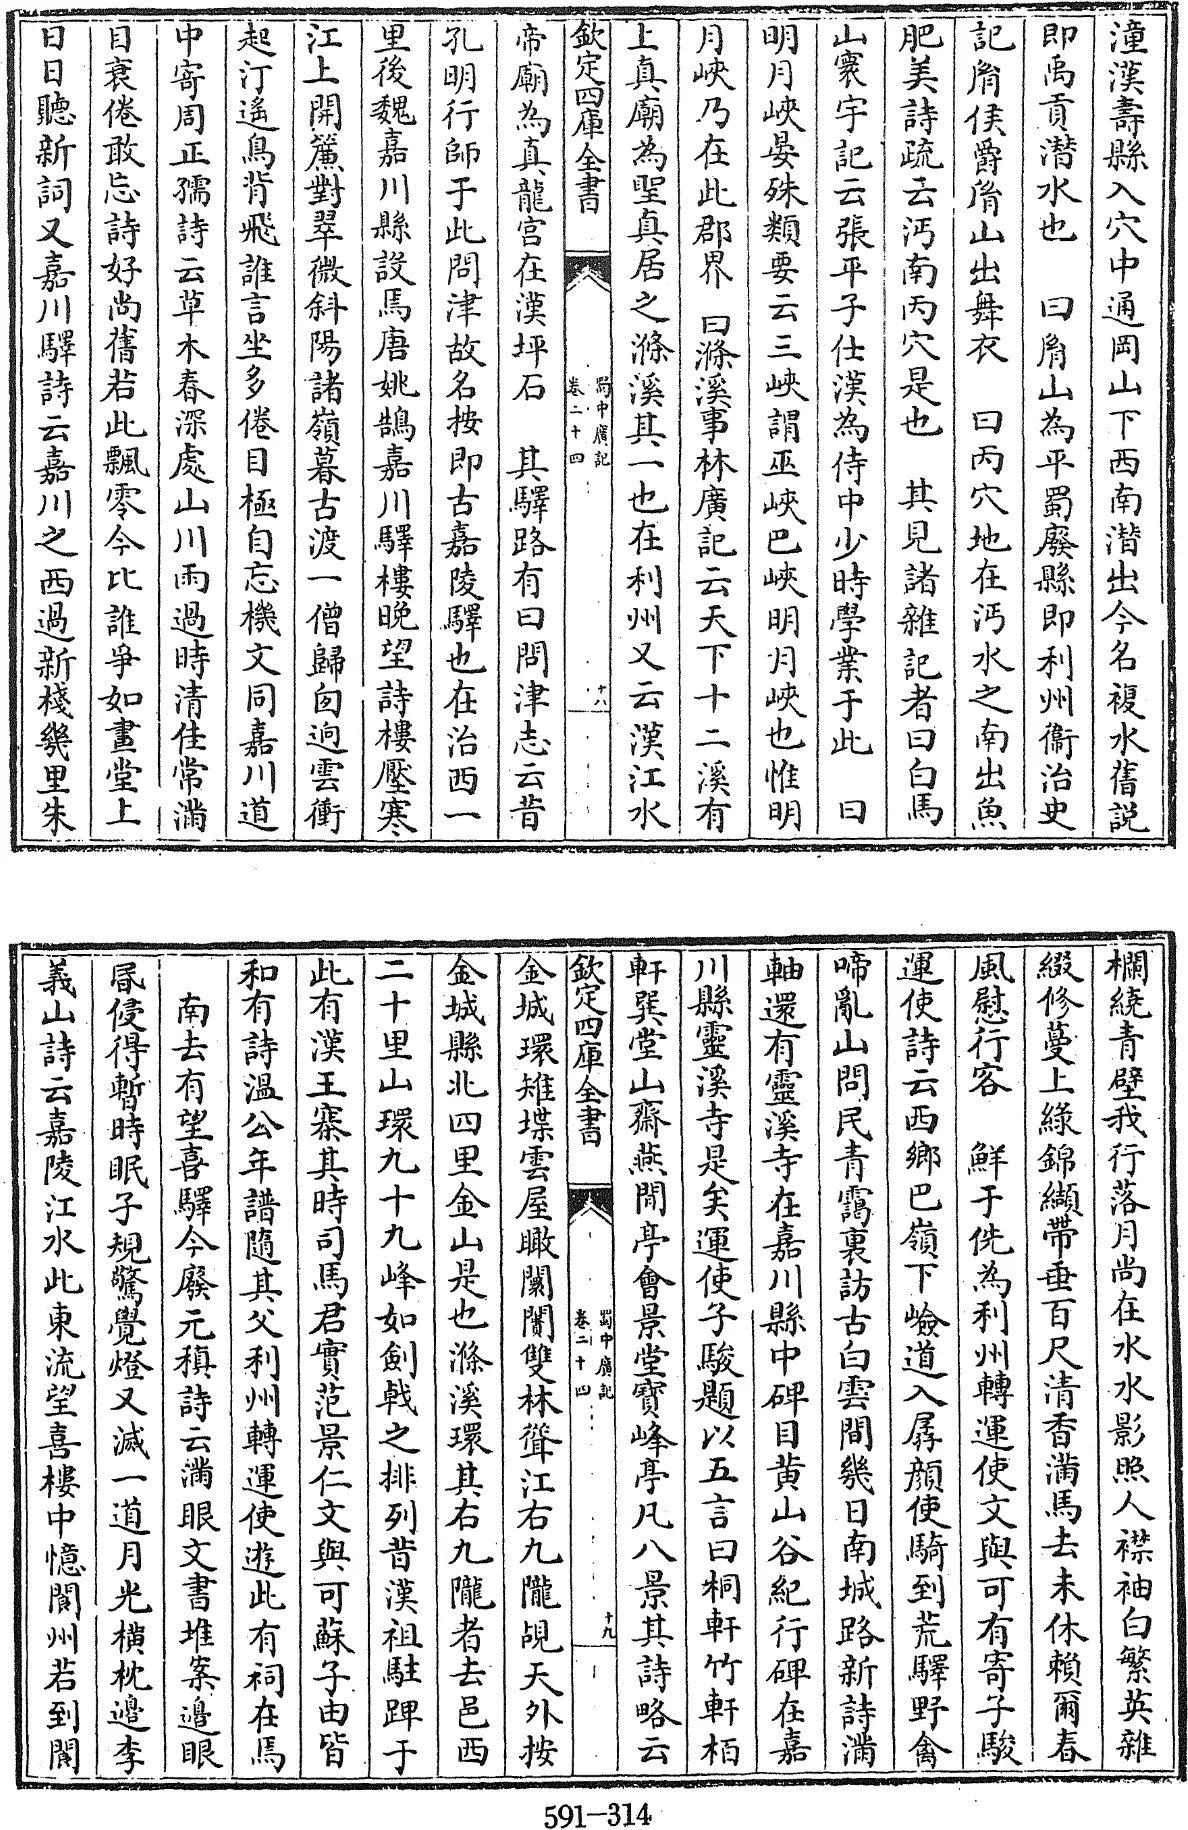 潼漢壽縣入穴中通岡山下西南潛出今名複水舊説
即禹貢潛水也　曰㢙山為平蜀廢縣即利州衞治史
記㢙侯爵㢙山出舞衣　曰丙穴地在沔水之南出魚
肥美詩疏云沔南丙穴是也　其見諸雜記者曰白馬
山寰宇記云張平子仕漢為侍中少時學業于此　曰
明月峽晏殊類要云三峽謂巫峽巴峽明月峽也惟明
月峽乃在此郡界　曰滌溪事林廣記云天下十二溪有
上真廟為聖真居之滌溪其一也在利州又云漢江水
欽定四庫全書
蜀中廣記
卷二十四
十八
帝廟為真龍宫在漢坪石　其驛路有曰問津志云昔
孔明行師于此問津故名按即古嘉陵驛也在治西一
里後魏嘉川縣設馬唐姚鵠嘉川驛樓晚望詩樓壓寒
江上開簾對翠微斜陽諸嶺暮古渡一僧歸囪逈雲衝
起汀遙鳥背飛誰言坐多倦目極自忘機文同嘉川道
中寄周正孺詩云草木春深處山川雨過時清佳常滿
目衰倦敢忘詩好尚舊若此飄零今比誰爭如畫堂上
日日聽新詞又嘉川驛詩云嘉川之西過新棧幾里朱
欄繞青壁我行落月尚在水水影照人襟袖白繁英雜
綴修蔓上綠錦纈帶垂百尺清香滿馬去未休賴爾春
風慰行客　鮮于侁為利州轉運使文與可有寄子駿
運使詩云西鄉巴嶺下嶮道入孱顔使騎到荒驛野禽
啼亂山問民青靄裏訪古白雲間幾日南城路新詩滿
軸還有靈溪寺在嘉川縣中碑目黄山谷紀行碑在嘉
川縣靈溪寺是矣運使子駿題以五言曰桐軒竹軒栢
軒巽堂山齋燕閒亭會景堂寶峰亭凡八景其詩略云
欽定四庫全書
蜀中廣記
卷二十四
十九
金城環雉堞雲屋瞰闤闠雙林聳江右九隴覘天外按
金城縣北四里金山是也滌溪環其右九隴者去邑西
二十里山環九十九峰如劍戟之排列昔漢祖駐蹕于
此有漢王寨其時司馬君實范景仁文與可蘇子由皆
和有詩溫公年譜隨其父利州轉運使遊此有祠在馬
南去有望喜驛今廢元稹詩云滿眼文書堆案邊眼
昏侵得暫時眠子規驚覺燈又滅一道月光横枕邊李
義山詩云嘉陵江水此東流望喜樓中憶閬州若到閬
591—314